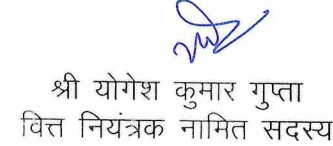 श्री योगेश कुमार गुप्ता
वित्त नियंत्रक नामित सदस्य